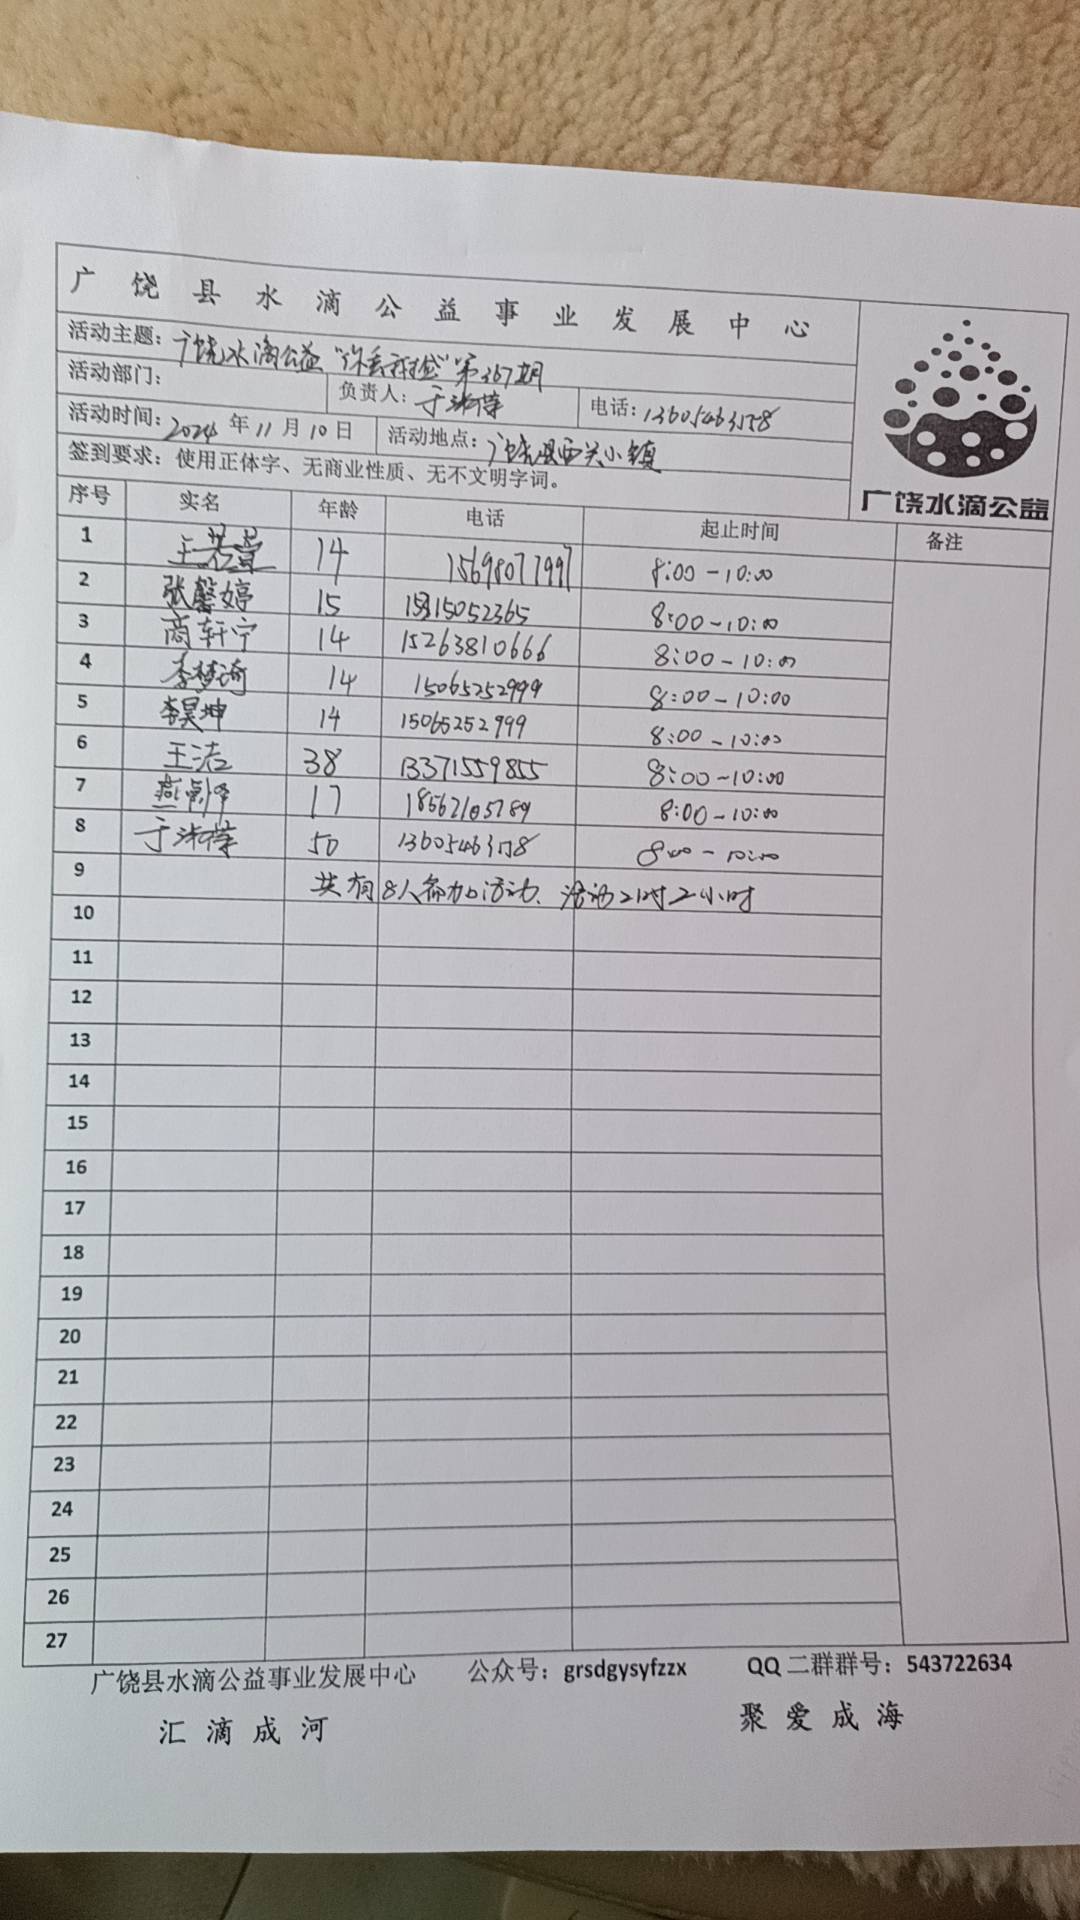 广饶县水滴公益事业发展中心
活动主题：广饶水滴公益"你丢我捡"第367期
活动部门： 负责人：于 电话：13605463158
活动时间：2024年11月10日 活动地点：广饶县西关小镇
签到要求：使用正体字、无商业性质、无不文明字词。
广饶水滴公益
序号 实名 年龄 电话 起止时间 备注
1 王 14 15698077997 8:00-10:00
2 张馨婷 15 15315052365 8:00-10:00
3 商轩宁 14 15263810666 8:00-10:00
4 李梦琦 14 15065252999 8:00-10:00
5 李昊坤 14 15065252999 8:00-10:00
6 王洁 38 13371559855 8:00-10:00
7 燕 17 8:00-10:00
8 于 50 13605463158 8:00-10:00
9 共有8人参加活动、活动2时2小时
10
11
12
13
14
15
16
17
18
19
20
21
22
23
24
25
26
27
广饶县水滴公益事业发展中心 公众号：grsdgysyfzzx QQ二群群号：543722634
汇滴成河 聚爱成海